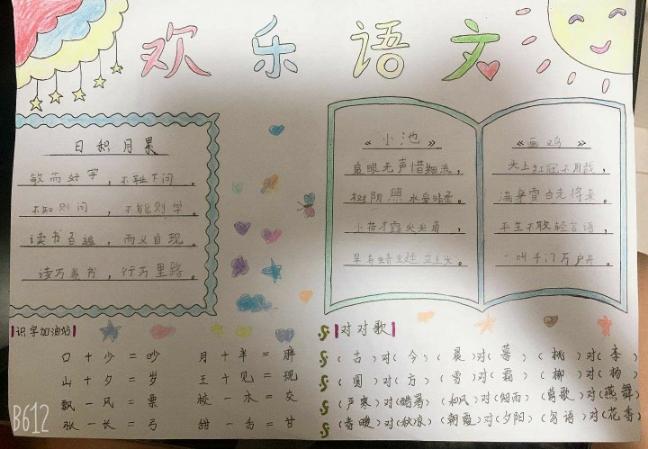 欢乐语文
日积月累
敏而好学，不耻下问。
不知则问，不能则学
读书百遍，而义自现。
读万卷书，行万里路。
《小池》
泉眼无声惜细流，
树阴照水爱晴柔。
小荷才露尖尖角，
早有蜻蜓
《画鸡》
头上红冠不用裁，
满身雪白走将来。
不生不敢轻言语，
一叫千门万户开。
识字加油站
口+少=吵 月+半=胖
山+夕=岁 王+见=现
飘-风=票 校-木=交
张-长=弓 甜-舌=甘
对对歌
（古）对（今）（晨）对（暮）（桃）对（李）
（圆）对（方）（雪）对（霜）（柳）对（杨）
（严寒）对（酷暑）（和风）对（细雨）（莺歌）对（燕舞）
（春暖）对（秋凉）（朝霞）对（夕阳）（鸟语）对（花香）
B612